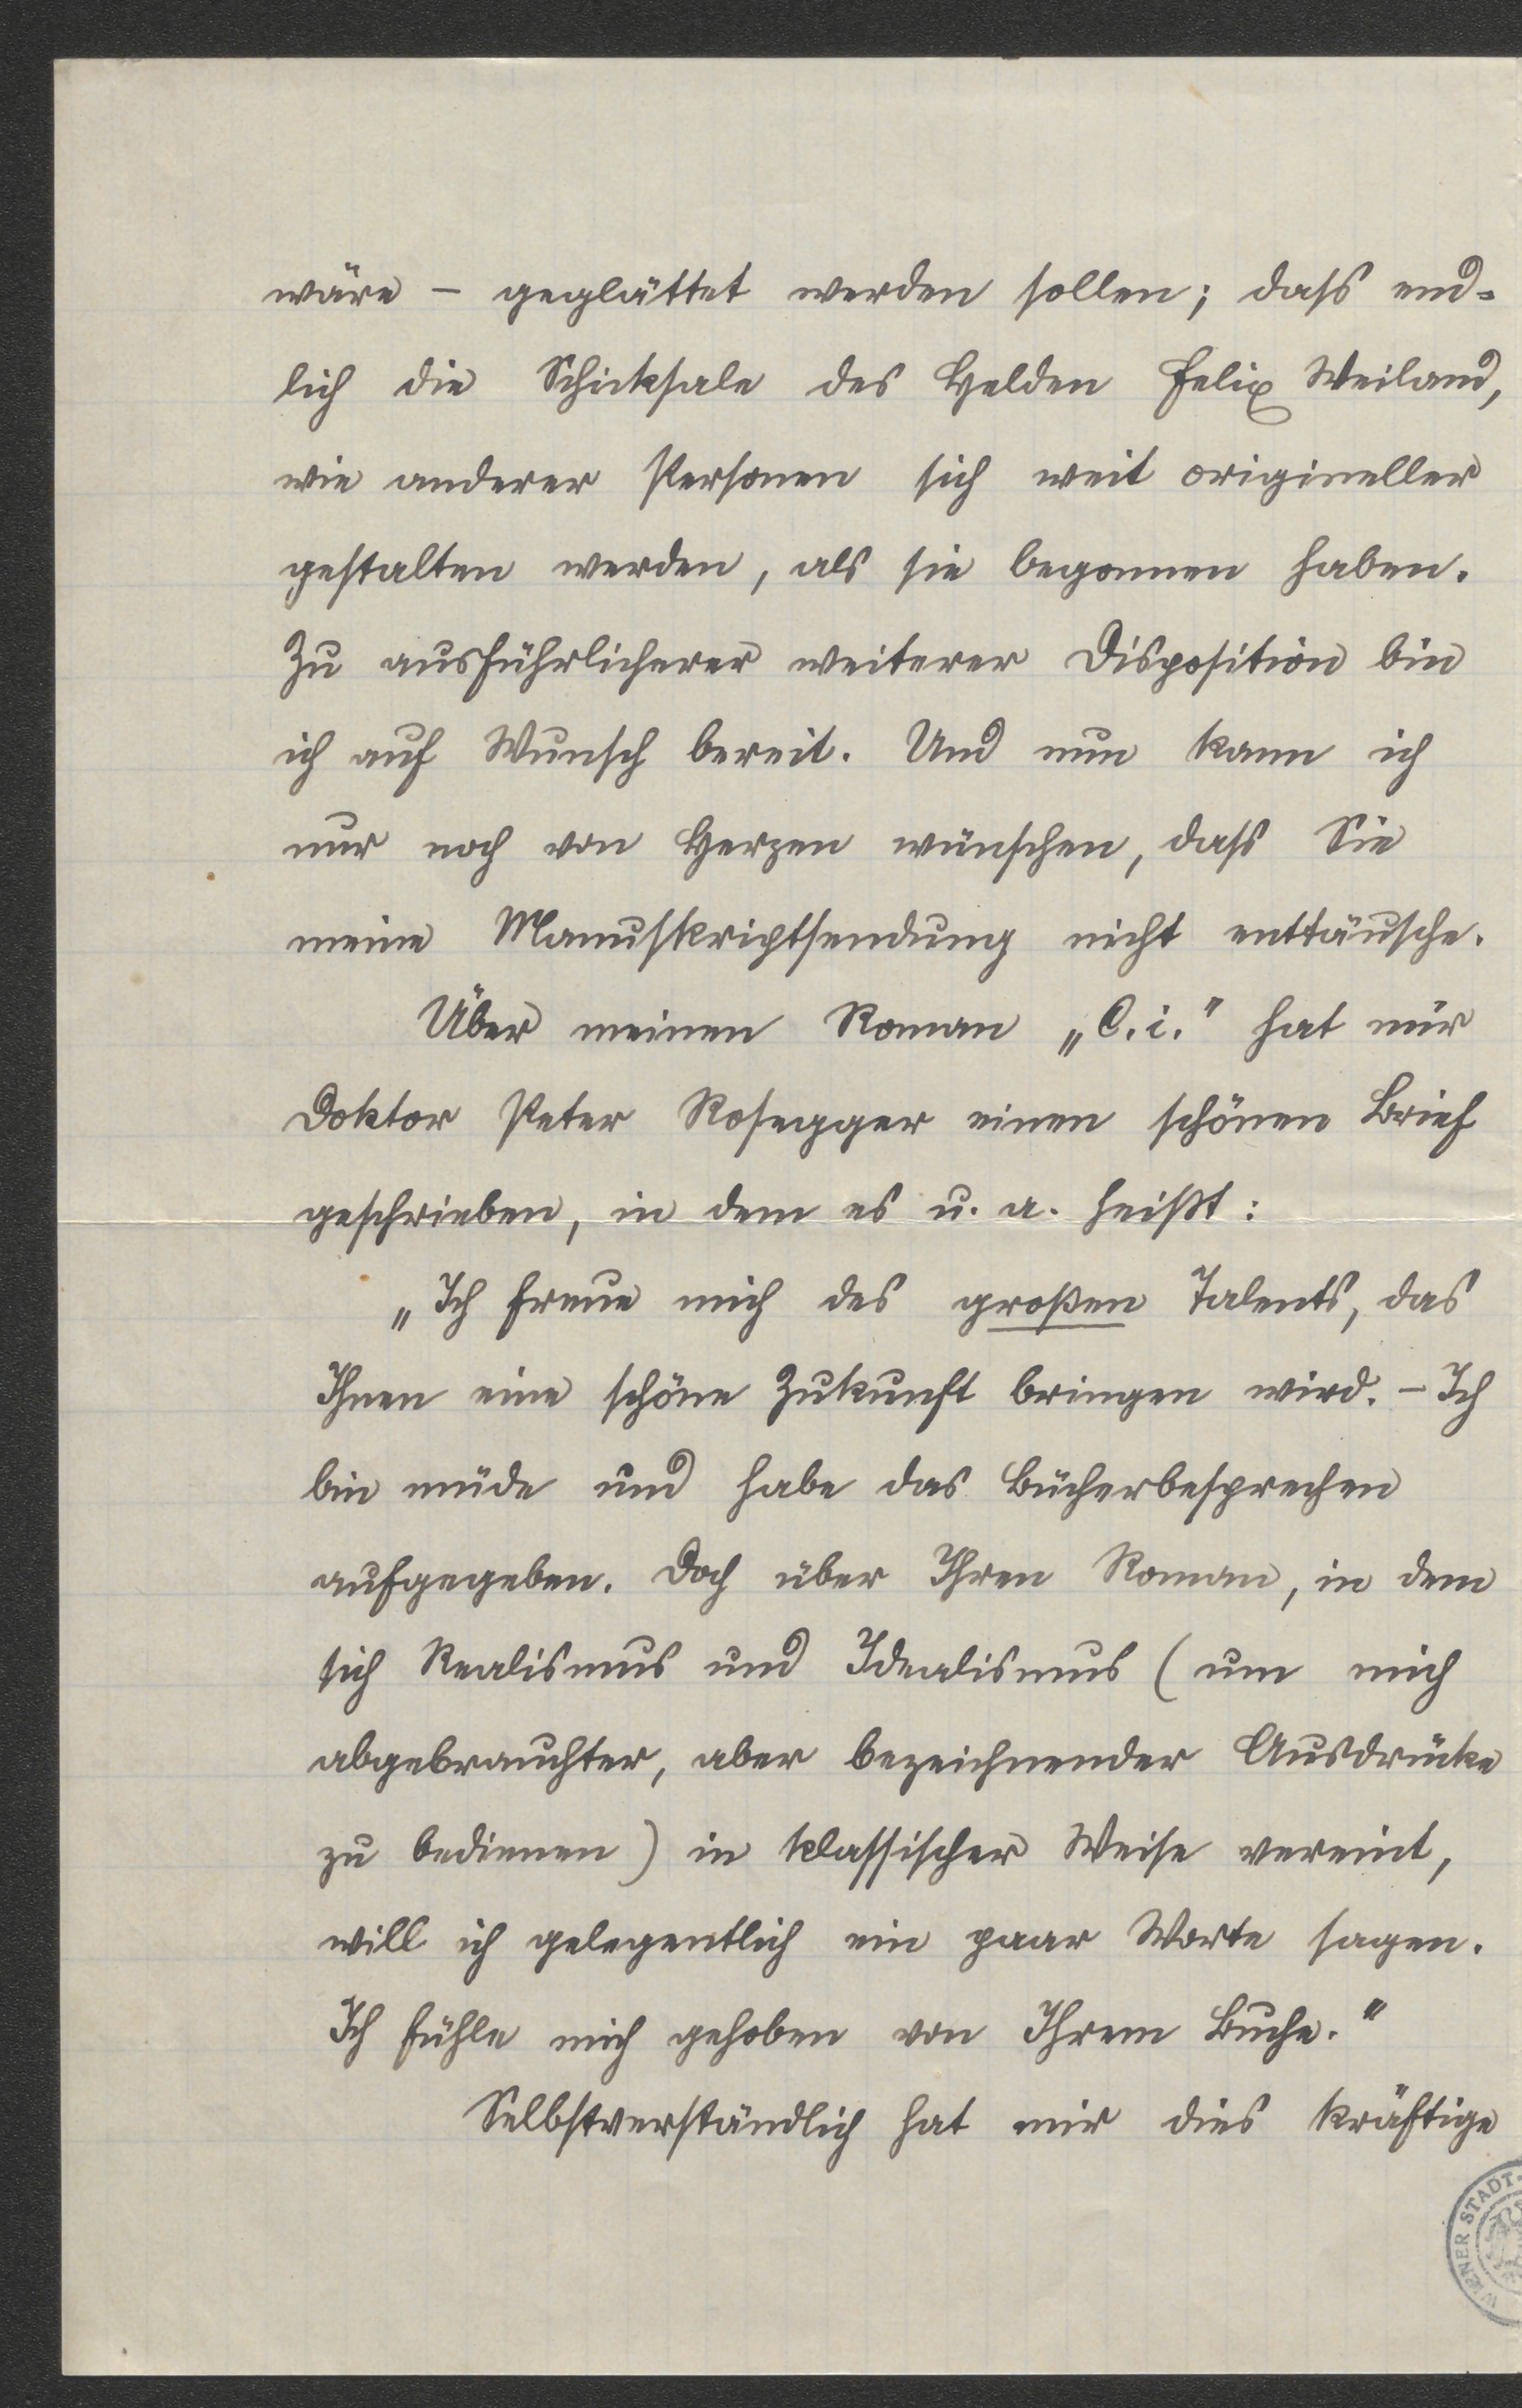 wäre – geglättet werden sollen; dass end=
lich die Schicksale des Helden Felix Weiland,
wie anderer Personen sich weit origineller
gestalten werden, als sie begonnen haben.
Zu ausführlicherer weiterer Disposition bin
ich auf Wunsch bereit. Und nun kann ich
nur noch von Herzen wünschen, dass Sie
meine Manuskriptsendung nicht enttäusche.
Über meinen Roman „C. i." hat mir
Doktor Peter Rosegger einen schönen Brief
geschrieben, in dem es u. a. heißt:
„Ich freue mich des großen Talents, das
Ihnen eine schöne Zukunft bringen wird. – Ich
bin müde und habe das Bücherbesprechen
aufgegeben. Doch über Ihren Roman, in dem
sich Realismus und Idealismus (um mich
abgebrauchter, aber bezeichnender Ausdrücke
zu bedienen) in klassischer Weise vereint,
will ich gelegentlich ein paar Worte sagen.
Ich fühle mich gehoben von Ihrem Buche."
Selbstverständlich hat mir dies kräftige
WIENER STADT-